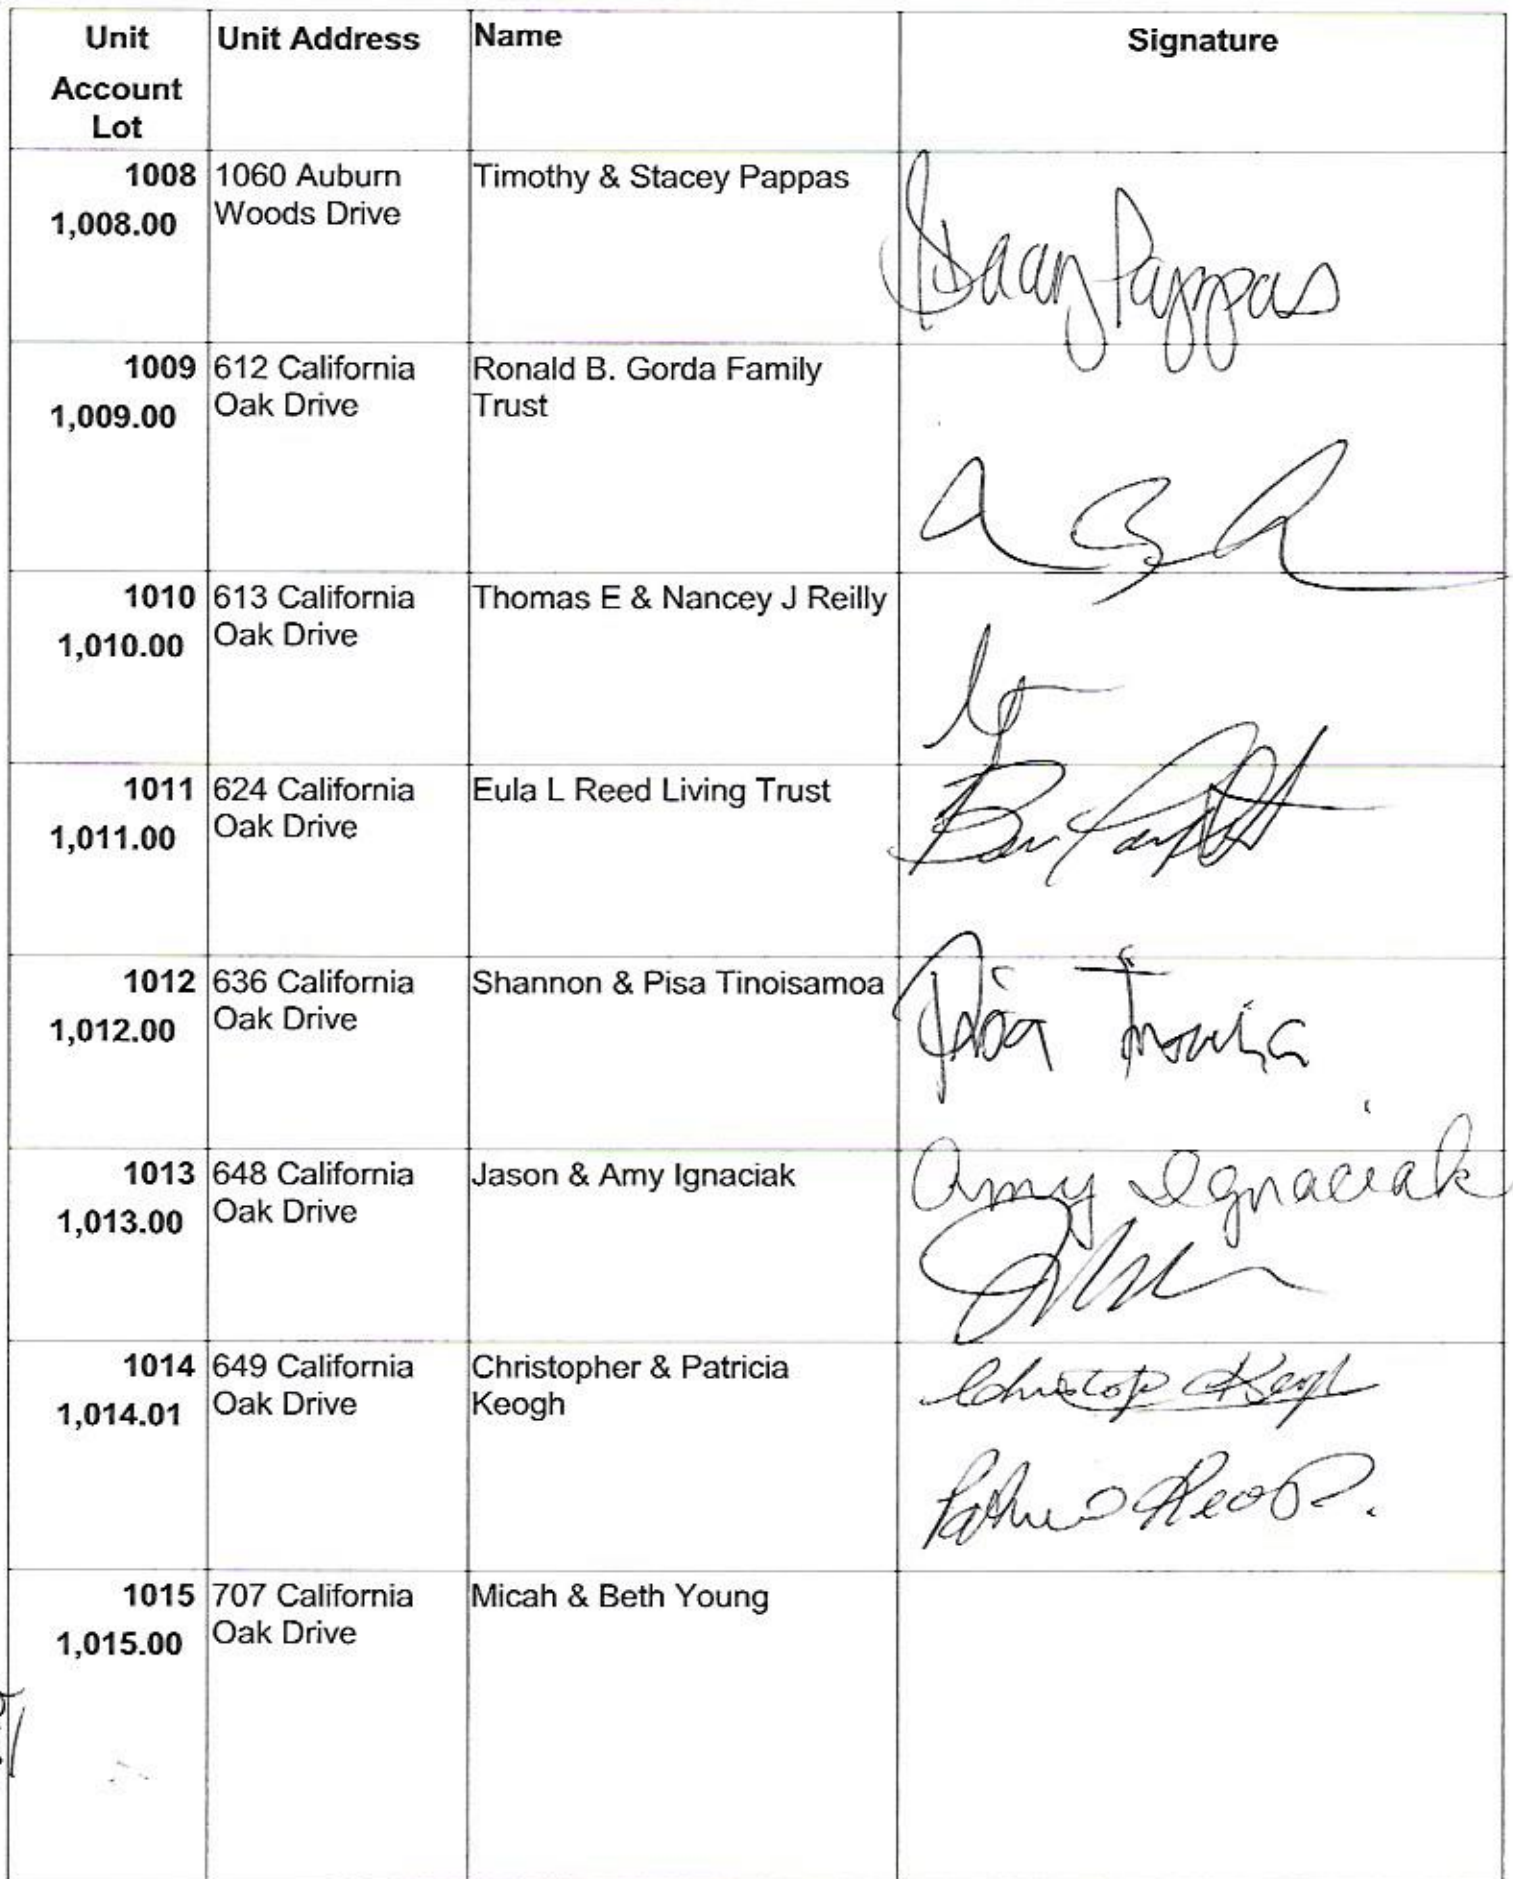 Unit Account Lot
Unit Address
Name
Signature
1008
1,008.00
1060 Auburn
Woods Drive
Timothy & Stacey Pappas
Stacey Pappas
1009
1,009.00
612 California
Oak Drive
Ronald B. Gorda Family
Trust
1010
1,010.00
613 California
Oak Drive
Thomas E & Nancey J Reilly
1011
1,011.00
624 California
Oak Drive
Eula L Reed Living Trust
1012
1,012.00
636 California
Oak Drive
Shannon & Pisa Tinoisamoa
Pisa
1013
1,013.00
648 California
Oak Drive
Jason & Amy Ignaciak
Amy Ignaciak
1014
1,014.01
649 California
Oak Drive
Christopher & Patricia
Keogh
Christop Keogh
Patricia Keogh
1015
1,015.00
707 California
Oak Drive
Micah & Beth Young